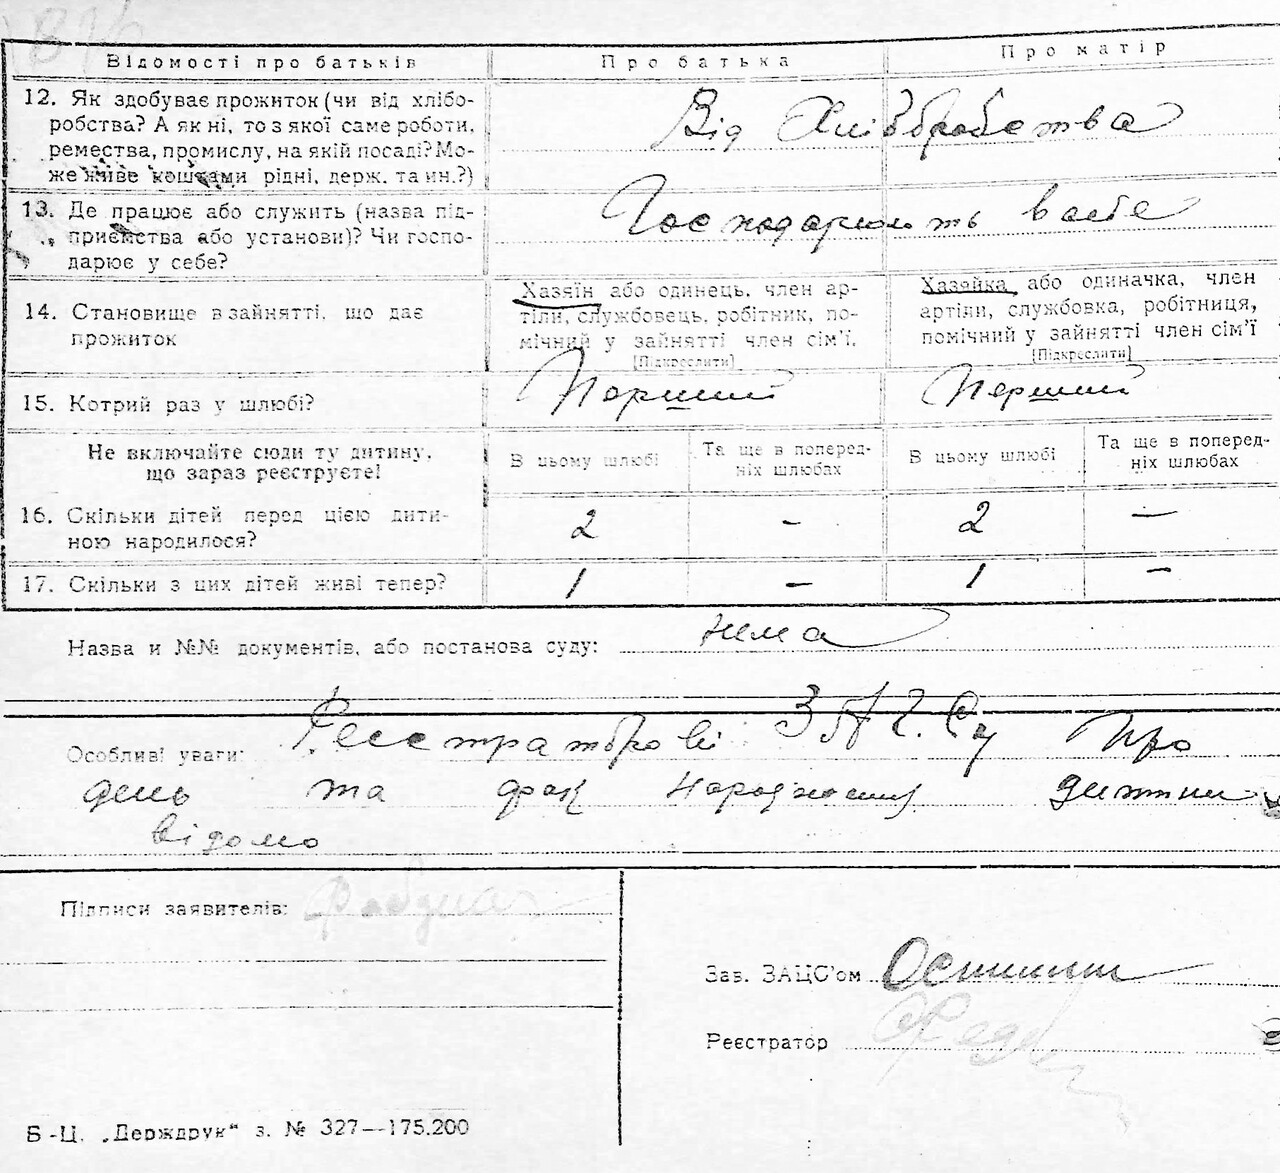 Відомості про батьків Про батька Про матір
12. Як здобуває прожиток (чи від хлібо-
робства? А як ні, то з якої саме роботи,
ремества, промислу, на якій посаді? Мо-
же живе коштами рідні, держ. та ин.?)
Від Хліборобства
13. Де працює або служить (назва під-
приємства або установи)? Чи госпо-
дарює у себе?
Господарюють в себе
14. Становище в зайнятті, що дає
прожиток
Хазяїн або одинець, член ар-
тіли, службовець, робітник, по-
мічний у зайнятті член сім'ї.
[Підкреслити]
Хазяйка або одиначка, член
артіни, службовка, робітниця,
помічний у зайнятті член сім'ї
[Підкреслити]
15. Котрий раз у шлюбі? Перший Перший
Не включайте сюди ту дитину,
що зараз реєструєте!
В цьому шлюбі
Та ще в поперед-
ніх шлюбах
В цьому шлюбі
Та ще в поперед-
ніх шлюбах
16. Скільки дітей перед цією дити-
ною народилося?
2 - 2 -
17. Скільки з цих дітей живі тепер? 1 - 1 -
Назва и №№ документів, або постанова суду: нема
Особливі уваги: Реєстраторові ЗАГ.Су про
день та народження дитини
відомо
Підписи заявителів:
Зав. ЗАЦС'ом
Реєстратор
Б-Ц. „Держдрук" з. № 327—175.200